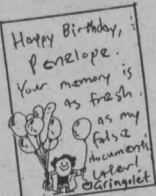 Happy Birthday,
Penelope.
Your memory is
as fresh
as my
false
documents.
Later!
Gringolet